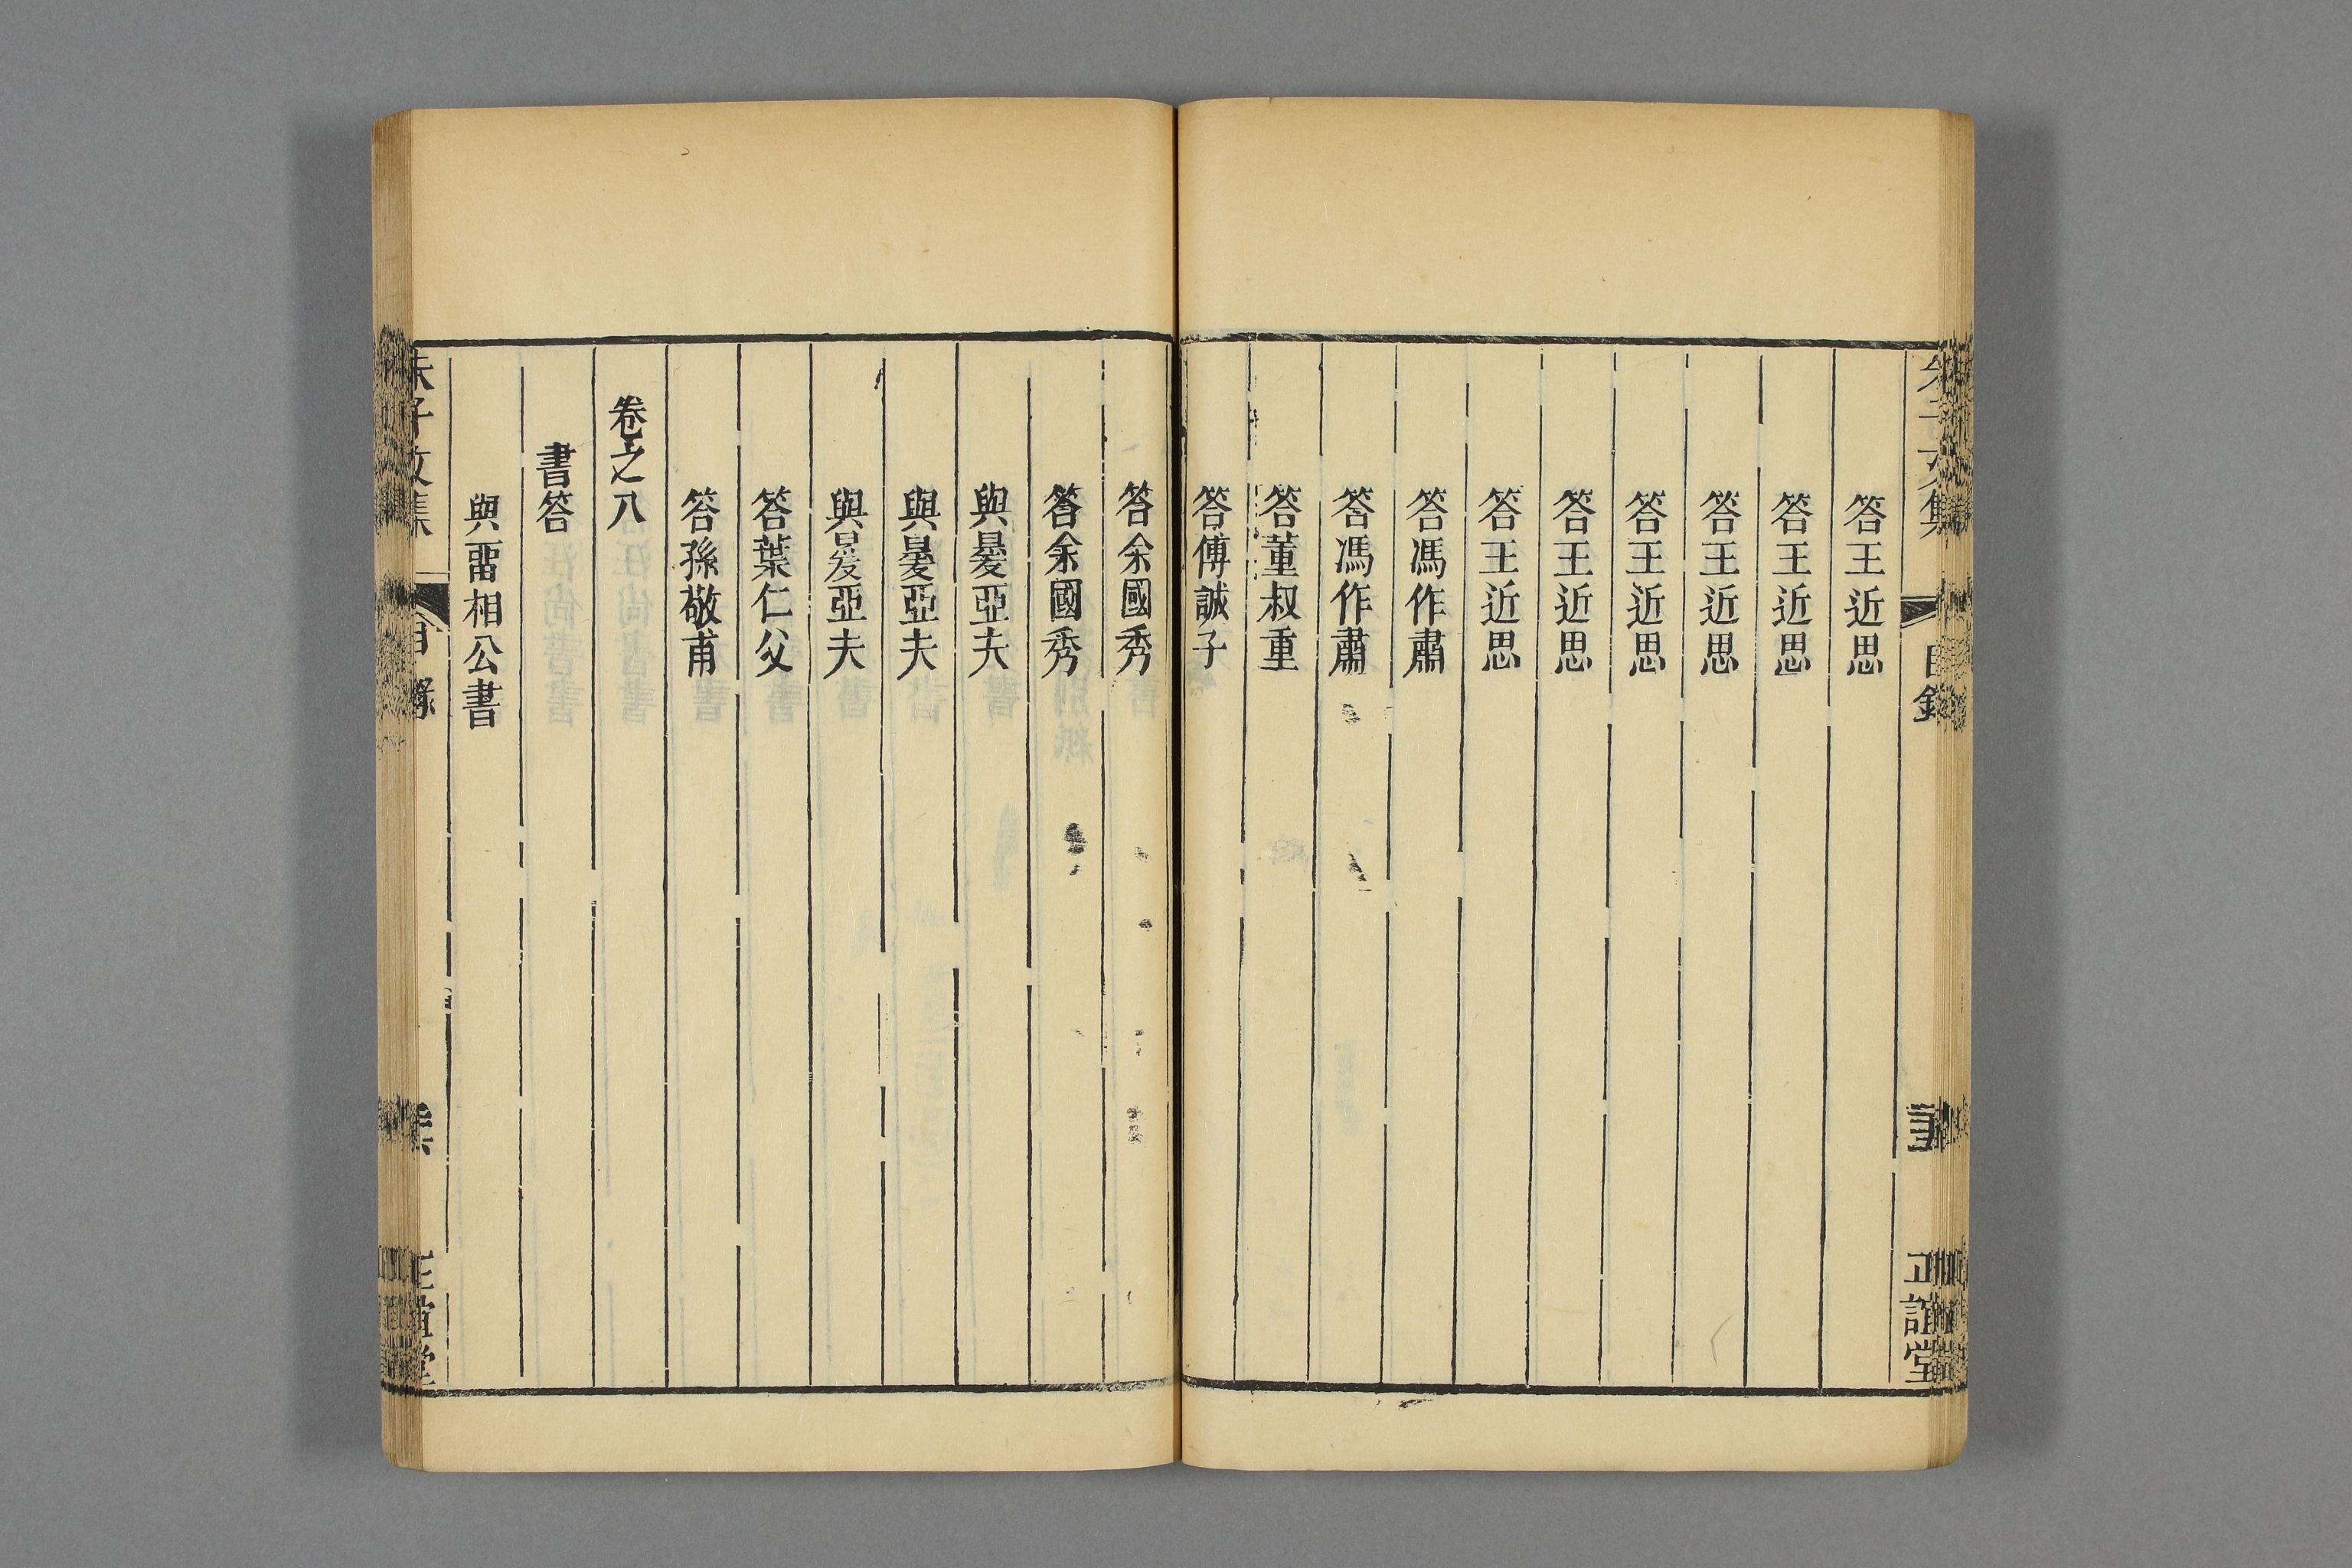 朱子文集 目錄 正誼堂
答王近思
答王近思
答王近思
答王近思
答王近思
答王近思
答馮作肅
答馮作肅
答董叔重
答傅誠子
答余國秀
答余國秀
與晏亞夫
與晏亞夫
與晏亞夫
答葉仁父
答孫敬甫
卷之八
書答
與畱相公書
朱子文集 目錄 正誼堂